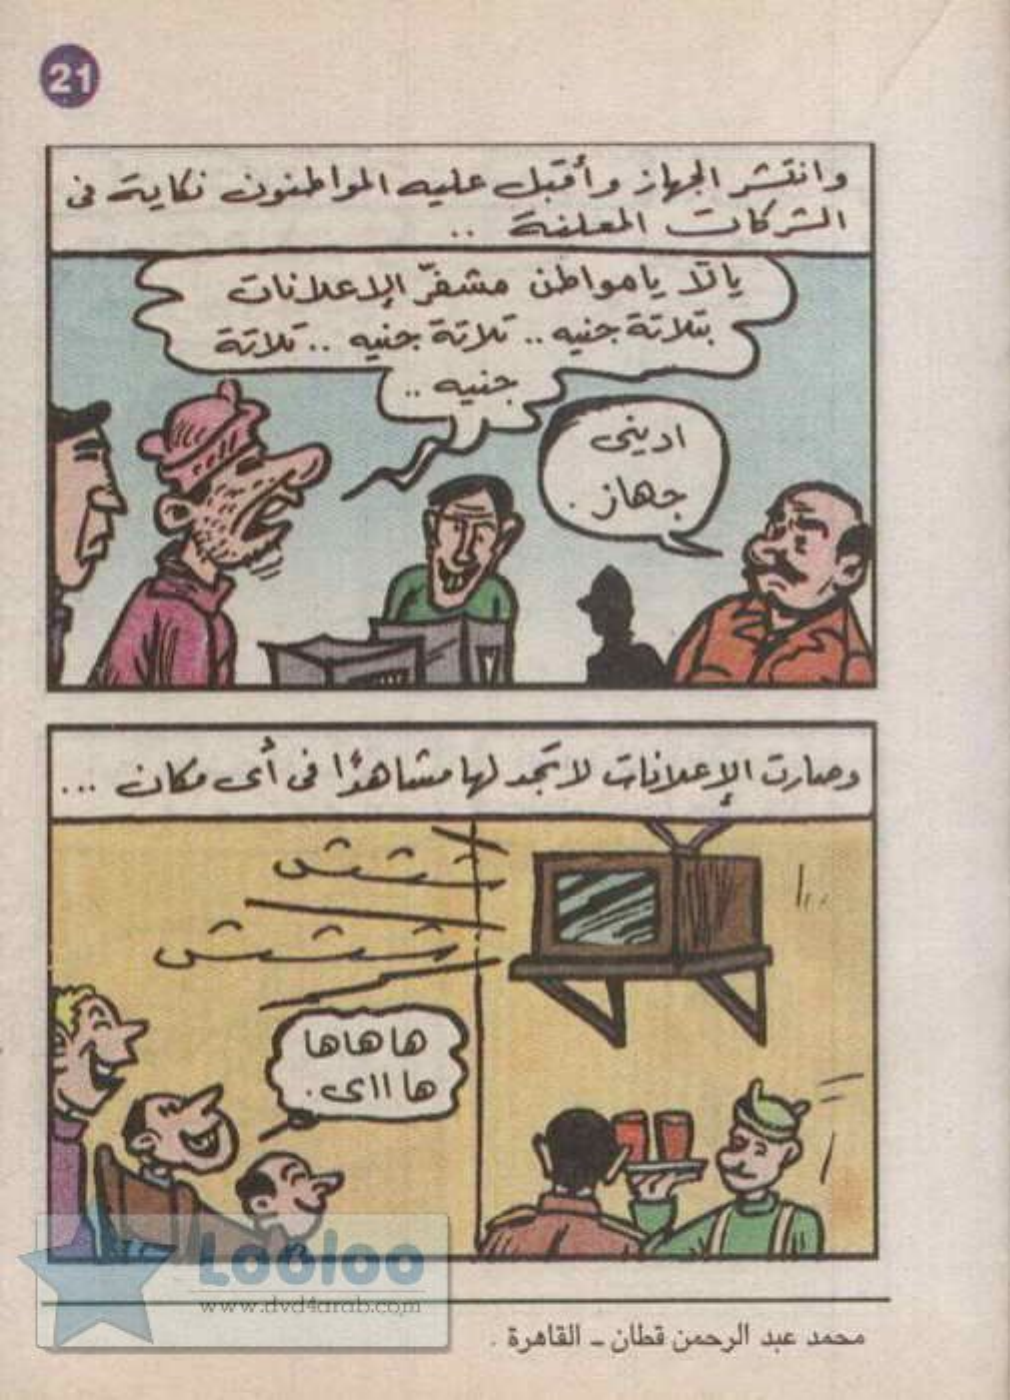 21
وانتشر الجهاز وأقبل عليه المواطنون نكاية فى
الشركات المعلنة ..
يالّا يا مواطن مشفّر الإعلانات
بتلاتة جنيه .. تلاتة جنيه .. تلاتة
جنيه ..
ادينى
جهاز .
وصارت الإعلانات لا تجد لها مشاهدًا فى أى مكان ...
شششش
شششش
ها هاها
ها ااى .
Looloo
www.dvd4arab.com
محمد عبد الرحمن قطان ـ القاهرة .